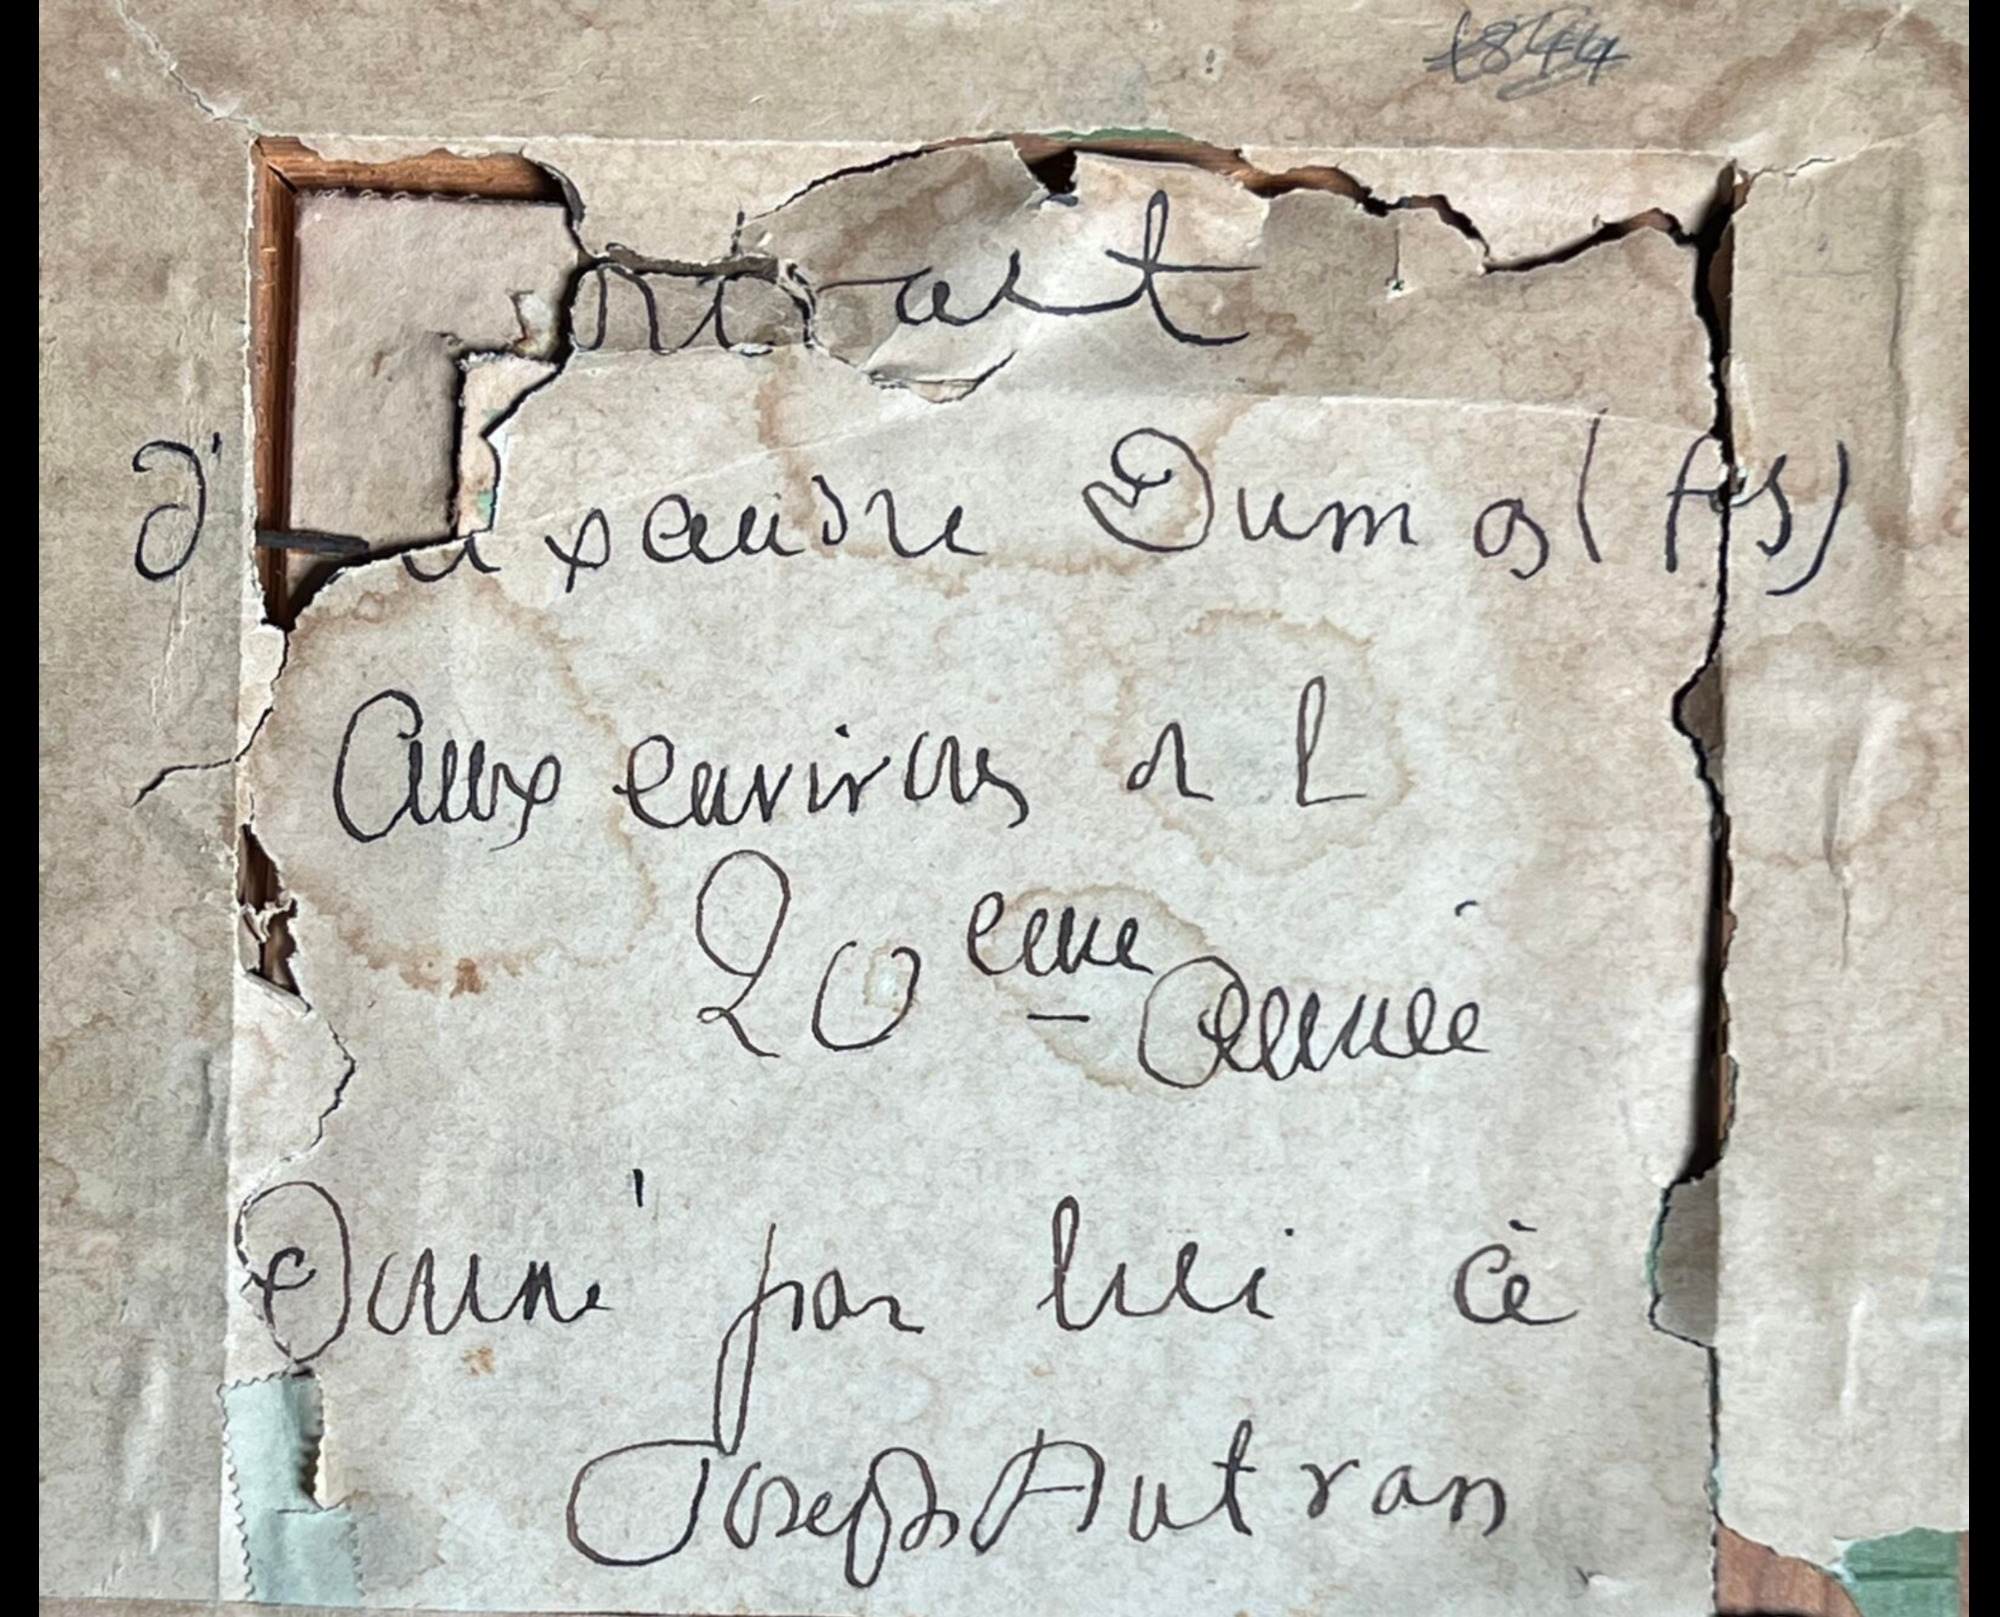 1844
ortrait
d'Alexandre Dumas (fils)
Aux environs de L
20eme Année
Donné par lui à
Joseph Autran